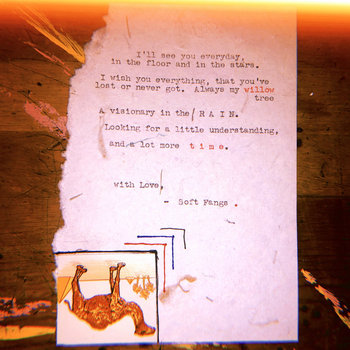 I'll see you everyday,
in the floor and in the stars.
I wish you everything, that you've
lost or never got. Always my willow
tree
A visionary in the R A I N.
Looking for a little understanding,
and a lot more t i m e.
with Love,
- Soft Fangs .